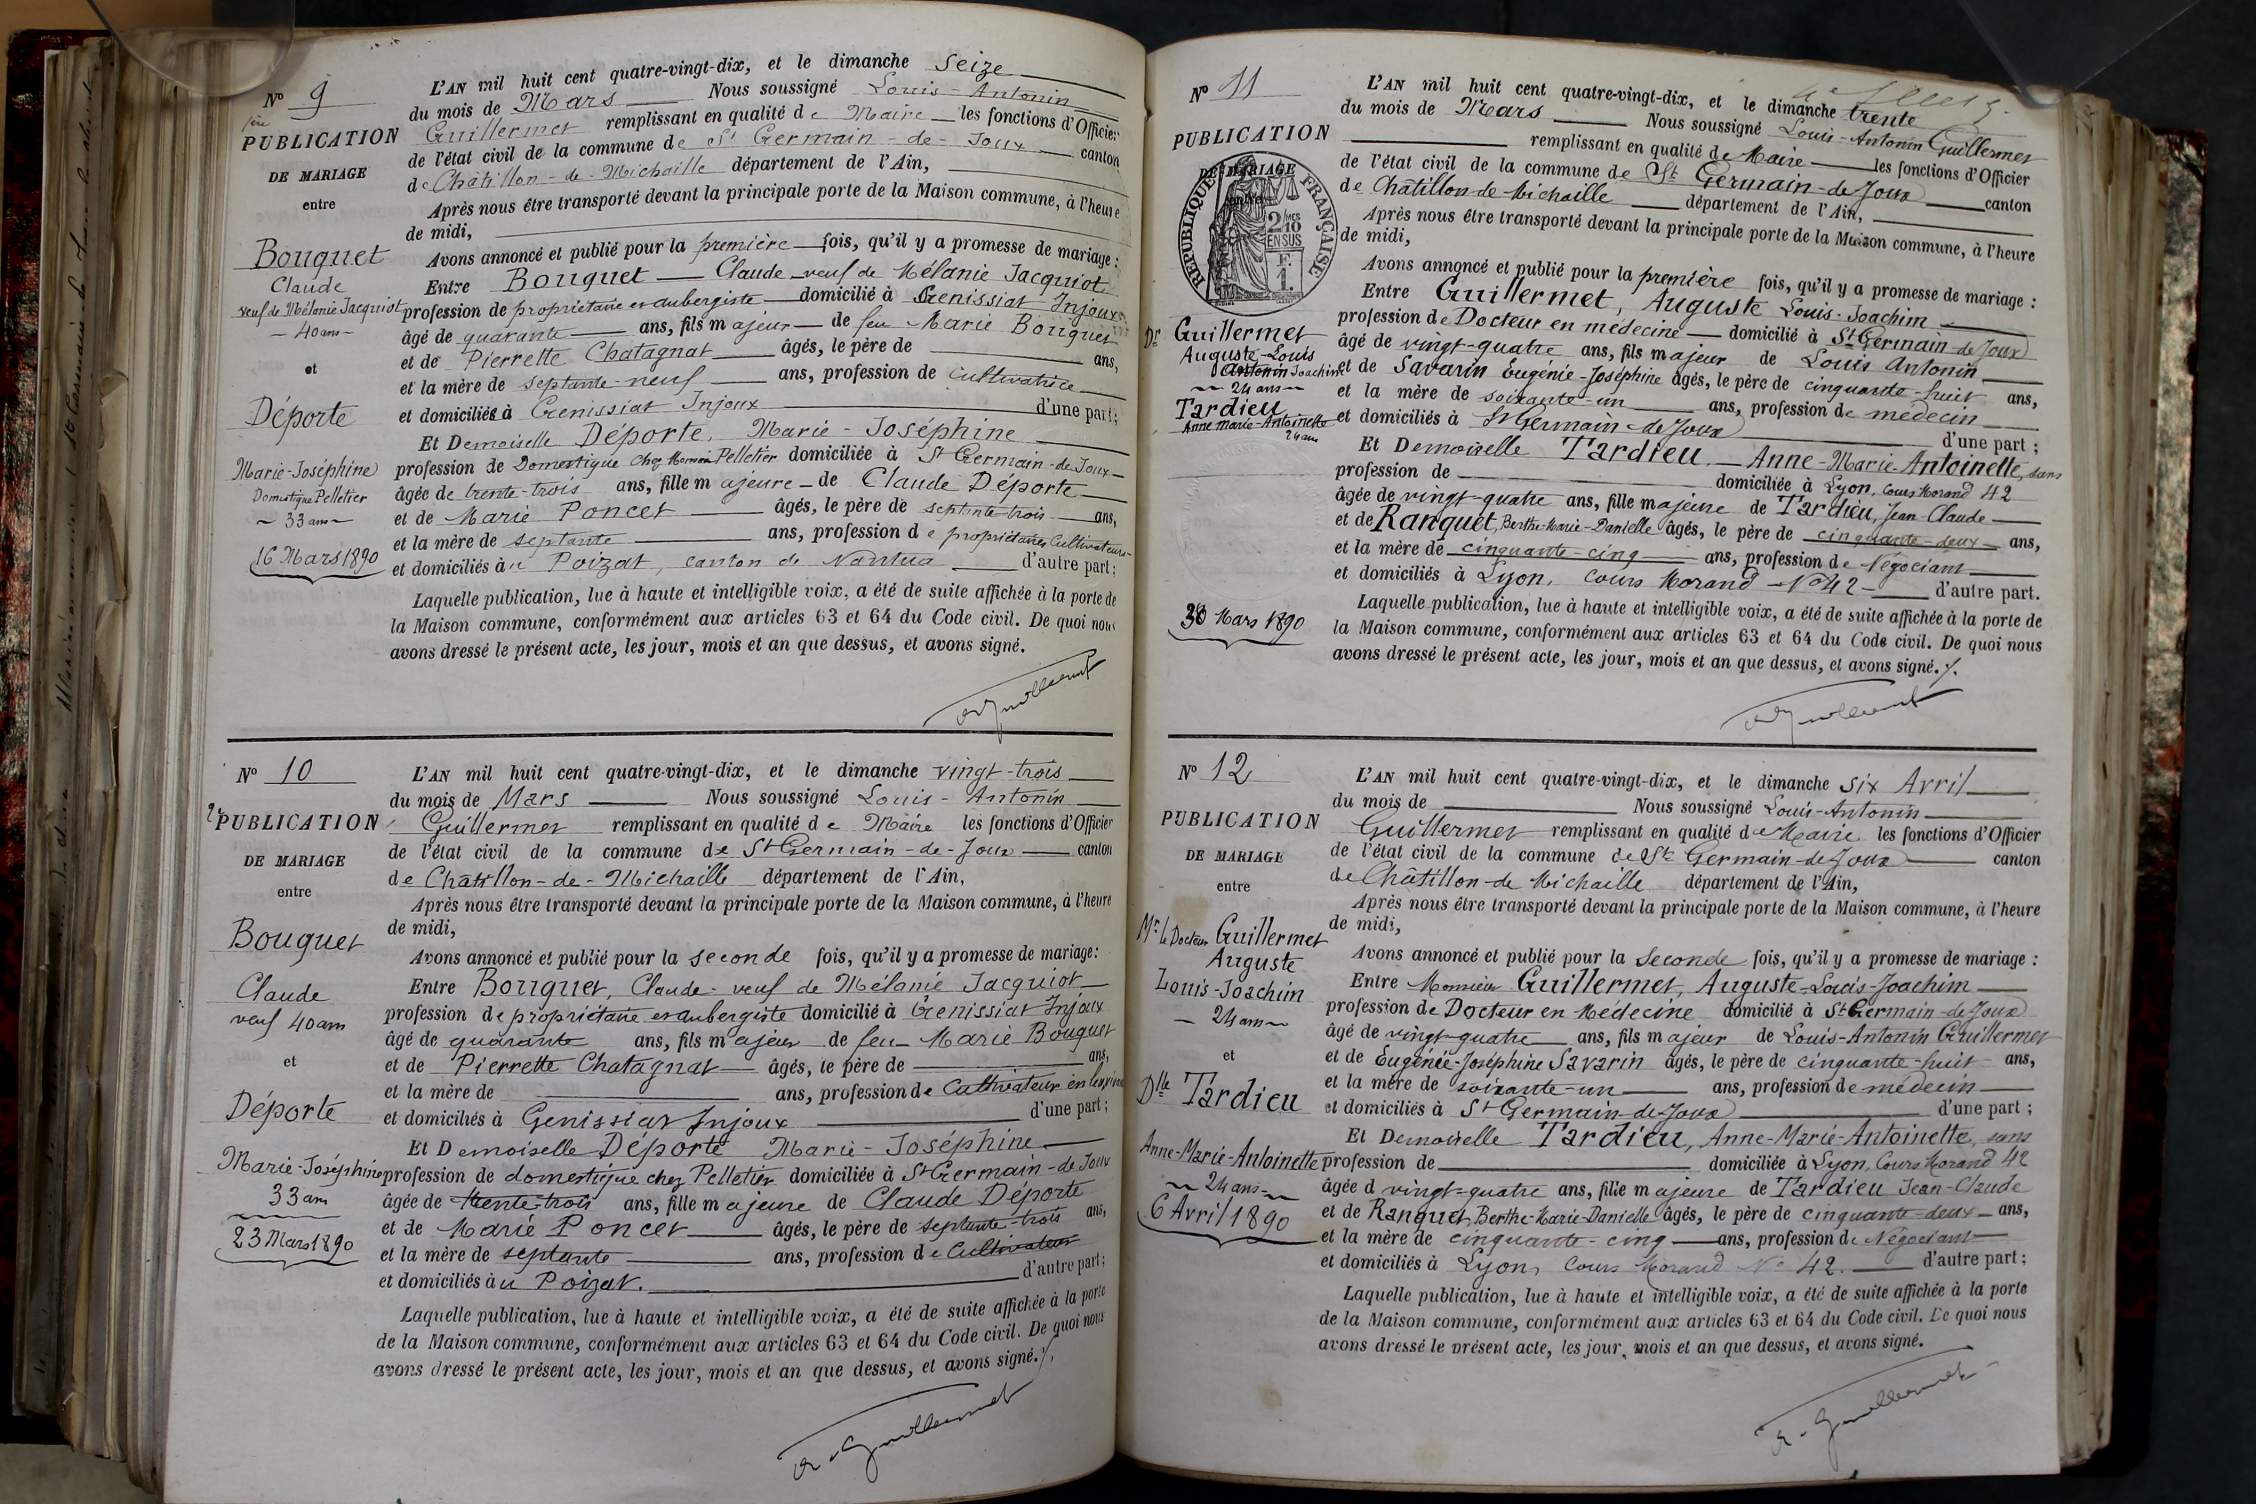 No 9
1ère
PUBLICATION
DE MARIAGE
entre
Bouquet
Claude
veuf de Mélanie Jacquiot
- 40 ans -
et
Déporte
Marie-Joséphine
Domestique Pelletier
~ 33 ans ~
16 Mars 1890
L'AN mil huit cent quatre-vingt-dix, et le dimanche seize
du mois de Mars Nous soussigné Louis-Antonin
Guillermet remplissant en qualité de Maire les fonctions d'Officier
de l'état civil de la commune de St Germain-de-Joux canton
de Châtillon-de-Michaille département de l'Ain,
Après nous être transporté devant la principale porte de la Maison commune, à l'heure
de midi,
Avons annoncé et publié pour la première fois, qu'il y a promesse de mariage :
Entre Bouquet Claude veuf de Mélanie Jacquiot
profession de propriétaire et aubergiste domicilié à Genissiat Injoux
âgé de quarante ans, fils majeur de feu Marie Bouquet
et de Pierrette Chatagnat âgés, le père de ans,
et la mère de septante-neuf ans, profession de cultivatrice
et domiciliés à Genissiat Injoux d'une part;
Et Demoiselle Déporte, Marie-Joséphine
profession de Domestique chez Pelletier domiciliée à St Germain-de-Joux
âgée de trente-trois ans, fille majeure de Claude Déporte
et de Marie Poncet âgés, le père de septante-trois ans,
et la mère de septante ans, profession de propriétaires Cultivateurs
et domiciliés au Poizat, canton de Nantua d'autre part;
Laquelle publication, lue à haute et intelligible voix, a été de suite affichée à la porte de
la Maison commune, conformément aux articles 63 et 64 du Code civil. De quoi nous
avons dressé le présent acte, les jour, mois et an que dessus, et avons signé.
A. Guillermet
No 10
2e PUBLICATION
DE MARIAGE
entre
Bouquet
Claude
veuf 40 ans
et
Déporte
Marie-Joséphine
33 ans
23 Mars 1890
L'AN mil huit cent quatre-vingt-dix, et le dimanche vingt-trois
du mois de Mars Nous soussigné Louis-Antonin
Guillermet remplissant en qualité de Maire les fonctions d'Officier
de l'état civil de la commune de St Germain-de-Joux canton
de Châtillon-de-Michaille département de l'Ain,
Après nous être transporté devant la principale porte de la Maison commune, à l'heure
de midi,
Avons annoncé et publié pour la seconde fois, qu'il y a promesse de mariage :
Entre Bouquet, Claude veuf de Mélanie Jacquiot
profession de propriétaire et aubergiste domicilié à Genissiat Injoux
âgé de quarante ans, fils majeur de feu Marie Bouquet
et de Pierrette Chatagnat âgés, le père de ans,
et la mère de ans, profession de Cultivateur
et domiciliés à Genissiat Injoux d'une part;
Et Demoiselle Déporte Marie-Joséphine
profession de domestique chez Pelletier domiciliée à St Germain-de-Joux
âgée de trente-trois ans, fille majeure de Claude Déporte
et de Marie Poncet âgés, le père de septante-trois ans,
et la mère de septante ans, profession de Cultivateur
et domiciliés au Poizat. d'autre part;
Laquelle publication, lue à haute et intelligible voix, a été de suite affichée à la porte
de la Maison commune, conformément aux articles 63 et 64 du Code civil. De quoi nous
avons dressé le présent acte, les jour, mois et an que dessus, et avons signé.
A. Guillermet
No 11
PUBLICATION
DE MARIAGE
RÉPUBLIQUE FRANÇAISE
2/10MES
EN SUS
F.
1.
Dr Guillermet
Auguste-Louis
Antonin Joachim
~ 24 ans ~
Tardieu
Anne Marie-Antoinette
24 ans
30 Mars 1890
L'AN mil huit cent quatre-vingt-dix, et le dimanche trente
du mois de Mars Nous soussigné Louis-Antonin Guillermet
remplissant en qualité de Maire les fonctions d'Officier
de l'état civil de la commune de St Germain-de-Joux canton
de Châtillon-de-Michaille département de l'Ain,
Après nous être transporté devant la principale porte de la Maison commune, à l'heure
de midi,
Avons annoncé et publié pour la première fois, qu'il y a promesse de mariage :
Entre Guillermet, Auguste Louis-Joachim
profession de Docteur en médecine domicilié à St Germain-de-Joux
âgé de vingt-quatre ans, fils majeur de Louis Antonin
et de Savarin Eugénie-Joséphine âgés, le père de cinquante-huit ans,
et la mère de soixante-un ans, profession de médecin
et domiciliés à St Germain-de-Joux d'une part ;
Et Demoiselle Tardieu, Anne-Marie-Antoinette, sans
profession de domiciliée à Lyon, Cours Morand 42
âgée de vingt-quatre ans, fille majeure de Tardieu, Jean-Claude
et de Ranquet, Berthe-Marie-Danielle âgés, le père de cinquante-deux ans,
et la mère de cinquante-cinq ans, profession de Négociant
et domiciliés à Lyon, cours Morand No 42 d'autre part.
Laquelle publication, lue à haute et intelligible voix, a été de suite affichée à la porte de
la Maison commune, conformément aux articles 63 et 64 du Code civil. De quoi nous
avons dressé le présent acte, les jour, mois et an que dessus, et avons signé.
A. Guillermet
No 12
PUBLICATION
DE MARIAGE
entre
Mr le Docteur Guillermet
Auguste
Louis-Joachim
- 24 ans ~
et
Dlle Tardieu
Anne-Marie-Antoinette
~ 24 ans ~
6 Avril 1890
L'AN mil huit cent quatre-vingt-dix, et le dimanche six Avril
du mois de Nous soussigné Louis-Antonin
Guillermet remplissant en qualité de Maire les fonctions d'Officier
de l'état civil de la commune de St Germain-de-Joux canton
de Châtillon-de-Michaille département de l'Ain,
Après nous être transporté devant la principale porte de la Maison commune, à l'heure
de midi,
Avons annoncé et publié pour la seconde fois, qu'il y a promesse de mariage :
Entre Monsieur Guillermet, Auguste-Louis-Joachim
profession de Docteur en Médecine domicilié à St Germain-de-Joux
âgé de vingt-quatre ans, fils majeur de Louis-Antonin Guillermet
et de Eugénie-Joséphine Savarin âgés, le père de cinquante-huit ans,
et la mère de soixante-un ans, profession de médecin
et domiciliés à St Germain-de-Joux d'une part ;
Et Demoiselle Tardieu, Anne-Marie-Antoinette, sans
profession de domiciliée à Lyon, Cours Morand 42
âgée d vingt-quatre ans, fille majeure de Tardieu Jean-Claude
et de Ranquet, Berthe-Marie-Danielle âgés, le père de cinquante-deux ans,
et la mère de cinquante-cinq ans, profession de Négociant
et domiciliés à Lyon, cours Morand No 42. d'autre part;
Laquelle publication, lue à haute et intelligible voix, a été de suite affichée à la porte
de la Maison commune, conformément aux articles 63 et 64 du Code civil. De quoi nous
avons dressé le présent acte, les jour, mois et an que dessus, et avons signé.
A. Guillermet